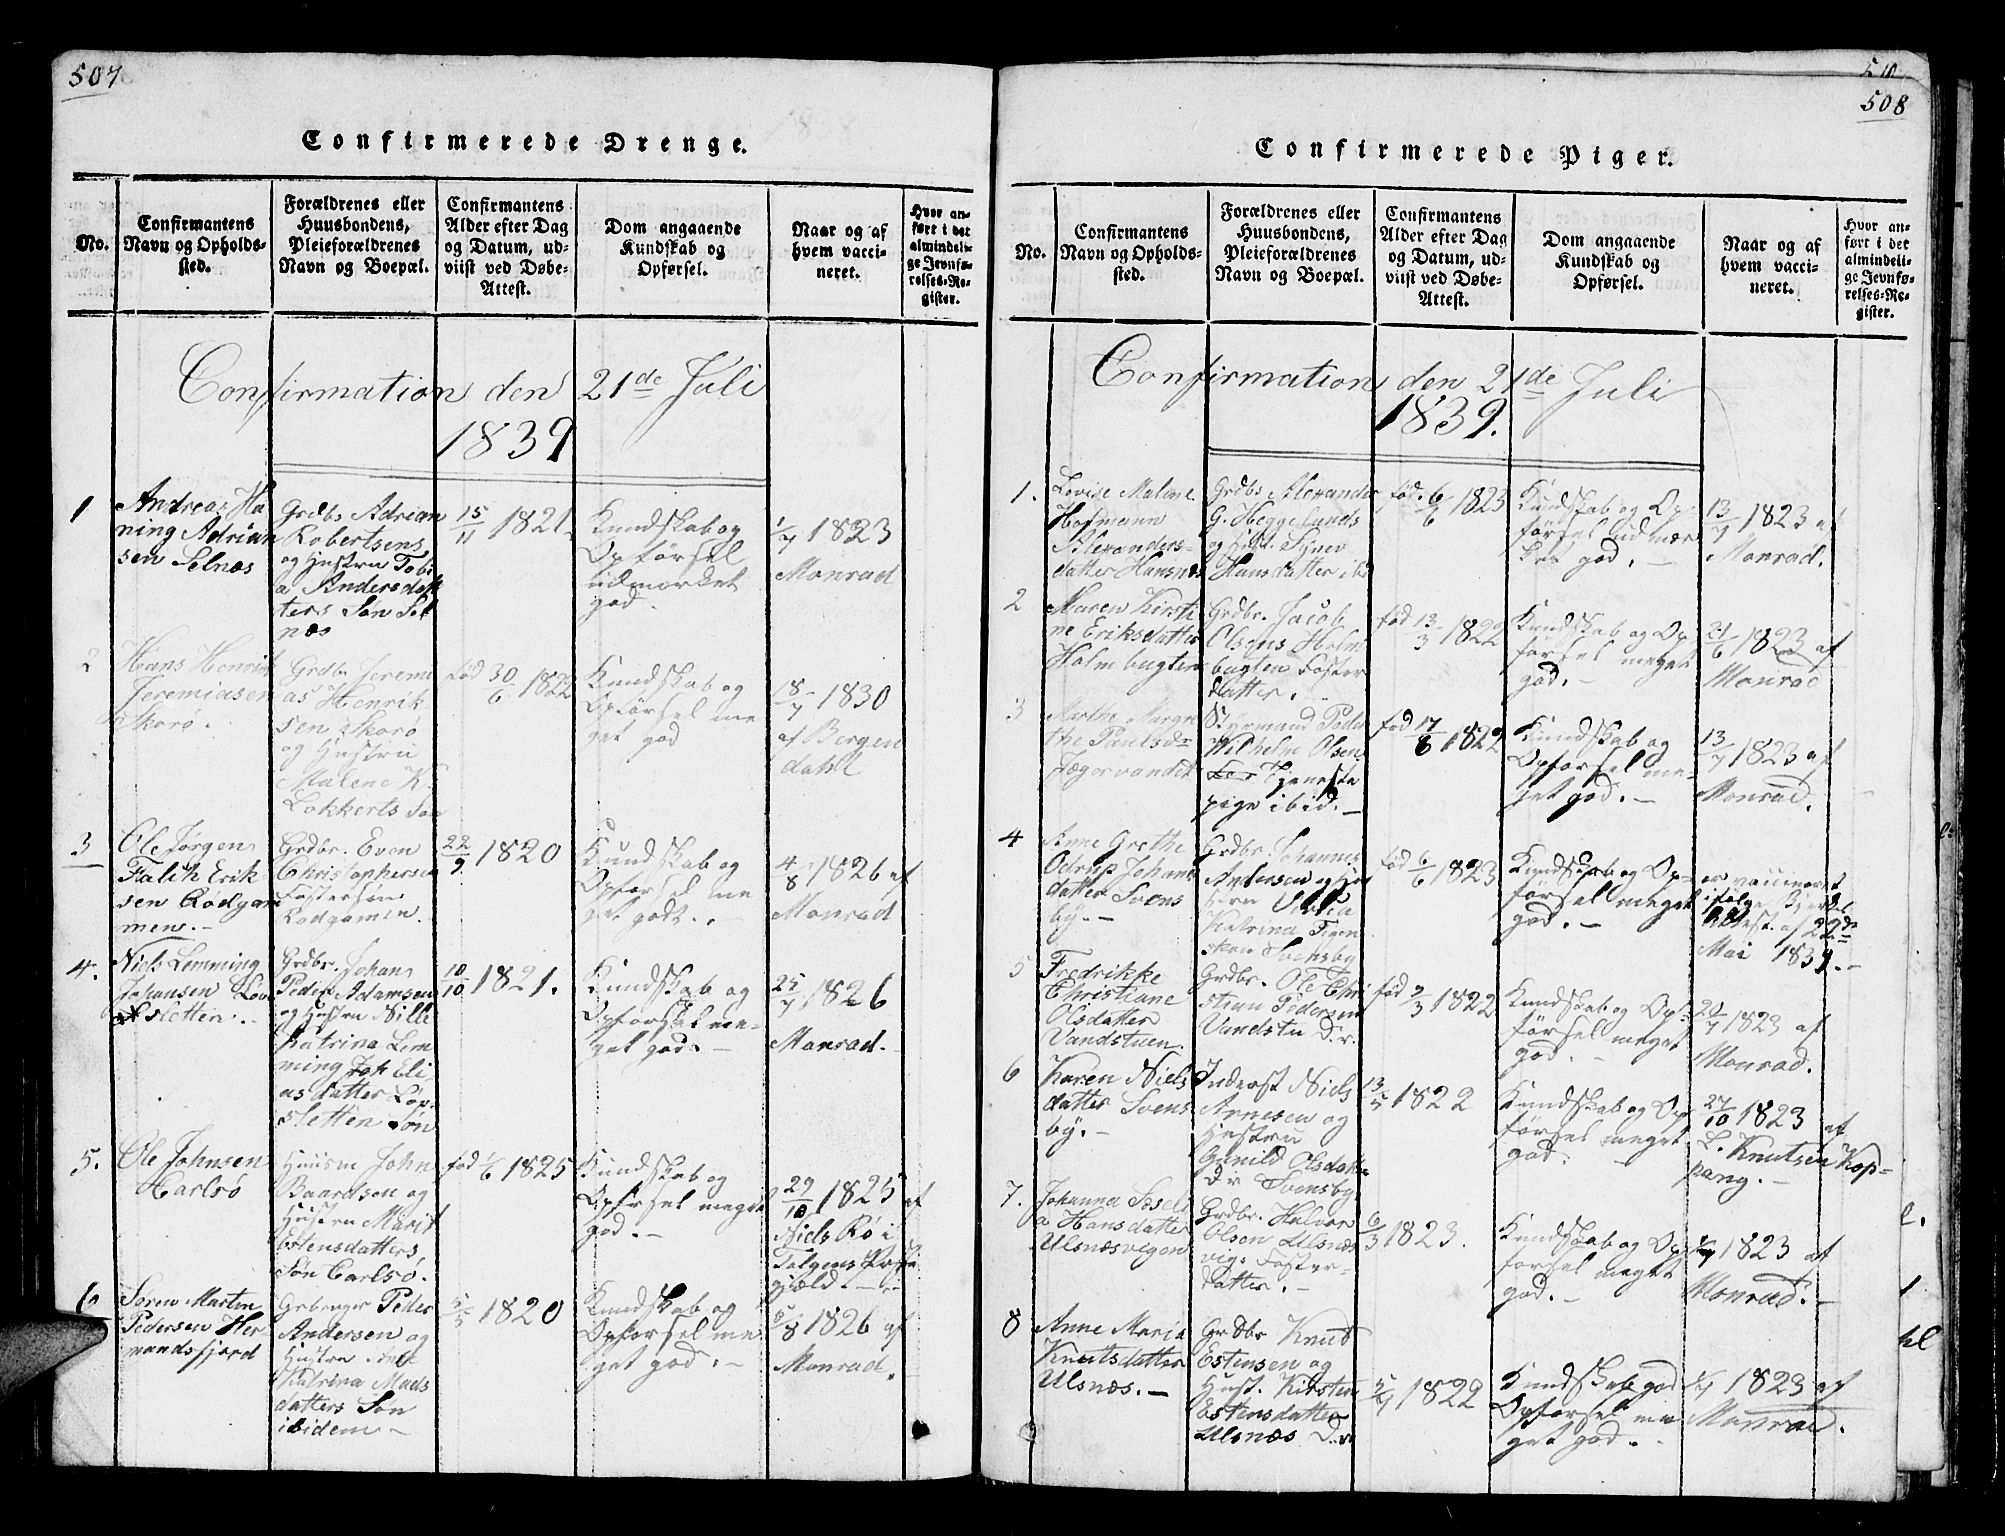 507
Confirmerede Drenge.
No.
Confirmantens
Navn og Opholds-
sted.
Forældrenes eller
Huusbondens,
Pleieforældrenes
Navn og Boepæl.
Confirmantens
Alder efter Dag
og Datum, ud-
viist ved Døbe-
Attest.
Dom angaaende
Kundskab og
Opførsel.
Naar og af
hvem vacci-
neret.
Hvor an-
ført i det
almindeli-
ge Jevnfø-
relses-Re-
gister.
Confirmation den 21de Juli
1839
1
Andreas Ha
ning Adrian
sen Selnæs
Grdbr. Adrian
Robertsens
og Hustru Tobi
a Andersdat
ters Søn Sel
næs
15/11 1821.
Kundskab og
Opførsel
udmærket
god.
1/7 1823
Monrad
2
Hans Henrik
Jeremiasen
Skorø.
Grdb. Jeremi
as Henrik
sen Skorø
og Hustru
Malene K.
Lokkerts Søn
født 30/6 1822
Kundskab og
Opførsel me
get god
18/7 1830
af Bergen
dahl
3
Ole Jørgen
Falch Erik
sen Rødgam
men.-
Grdbr. Even
Christophersen
Fostersøn
Rødgamen.
22/9 1820
Kundskab og
Opførsel me
get godt.-
4/8 1826 af
Monrad
4.
Niels Lemming
Johansen Løv
sletten.-
Grdbr. Johan
Peder Adamsen
og Hustru Nille
Katrina Lem
ming Joh Eli
as datter Løv
sletten Søn
10/10 1821.
Kundskab og
Opførsel me-
get god.-
25/7 1826
Monrad.-
5.
Ole Johnsen
Carlsø
Huusm John
Baardsen og
Hustru Marit
Estensdatters,
Søn Carlsø.
fød 1/6 1825
Kundskab og
Opførsel meget
god.-
29/10 1825 af
Niels Rø i
Tolgens Præste
gjæld
6
Søren Martin
Pedersen Her-
mandsfjord
Grbruger Peder
Andersen og
Hustru Anne
Katrina Mads
datters Søn
ibidem-
5/5 1820
Kundskab og
Opførsel me
get god.-
5/8 1826 af
Monrad.
510
508
Confirmerede Piger.
No.
Confirmantens
Navn og Opholds-
sted.
Forældrenes eller
Huusbondens,
Pleieforældrenes
Navn og Boepæl.
Confirmantens
Alder efter Dag
og Datum, ud-
viist ved Døbe-
Attest.
Dom angaaende
Kundskab og
Opførsel.
Naar og af
hvem vacci-
neret.
Hvor an-
ført i det
almindeli-
ge Jevnfø-
relses-Re-
gister.
Confirmation den 21de Juli
1839.
1.
Lovise Malene
Hofmann
Alexanders-
datter Hansnæs
Grdbs Alexander
G. Heggelunds
og Hust. Signe
Hansdatter ibd
fød. 6/6 1823
Kundskab og Op
førsel udmær
ket god.-
13/7 1823 af
Monrad.
2
Maren Kirsti
ne Eriksdatter
Holmbugten
Grdbr. Jacob
Olsens Holm
bugten Foster
datter.
fød 13/3 1822
Kundskab og Op
førsel meget
god.-
21/6 1823 af
Monrad
3
Marthe Margre
the Paulsd
Jægervandet
Styrmand Peder
Wilhelm Olsen
Tjeneste
pige ibid.-
fød 17/8 1822
Kundskab og
Opførsel me-
get god.-
13/7 1823 af
Monrad.
4
Anne Grethe
Odrup Johans
datter Svens
by.-
Grdbr. Johannes
Andersen og Hus
tru
Katrina
Svensby
fød 6/6 1823
Kundskab og Op-
førsel meget
god.-
er vaccineret
ifølge
Attest af 22de
Mai 1839.-
5
Fredrikke
Christiane
Olsdatter
Vandstuen.
Grdbr. Ole Chri
stian Pedersen
Vandstu D.r.
fød 9/3 1822
Kundskab og Op-
førsel meget
god.-
20/7 1823 af
Monrad.
6
Karen Niels
datter Svens
by.-
Inderst Niels
Arnesen og
Hustru
Gunild Olsdat
Dr Svensby
13/5 1822
Kundskab og Op
førsel meget
god.
27/10 1823 af
L. Knutsen Kop-
pang.-
7.
Johanna Soseli
a Hansdatter
Ulsnæsvigen
Grdbr. Halvor
Olsen Ulsnæs
vigs Foster-
datter.-
6/3 1823.
Kundskab og Op
førsel meget
god.-
1823 af
Monrad.-
8
Anne Maria
Knutsdatter
Ulsnæs.-
Grdbr Knut
Estensen og
Hust. Kirsten
Estensdatter
Ulsnæs D.r
5/9 1822
Kundskab god
Opførsel me
get god.-
1823 af
Monrad.